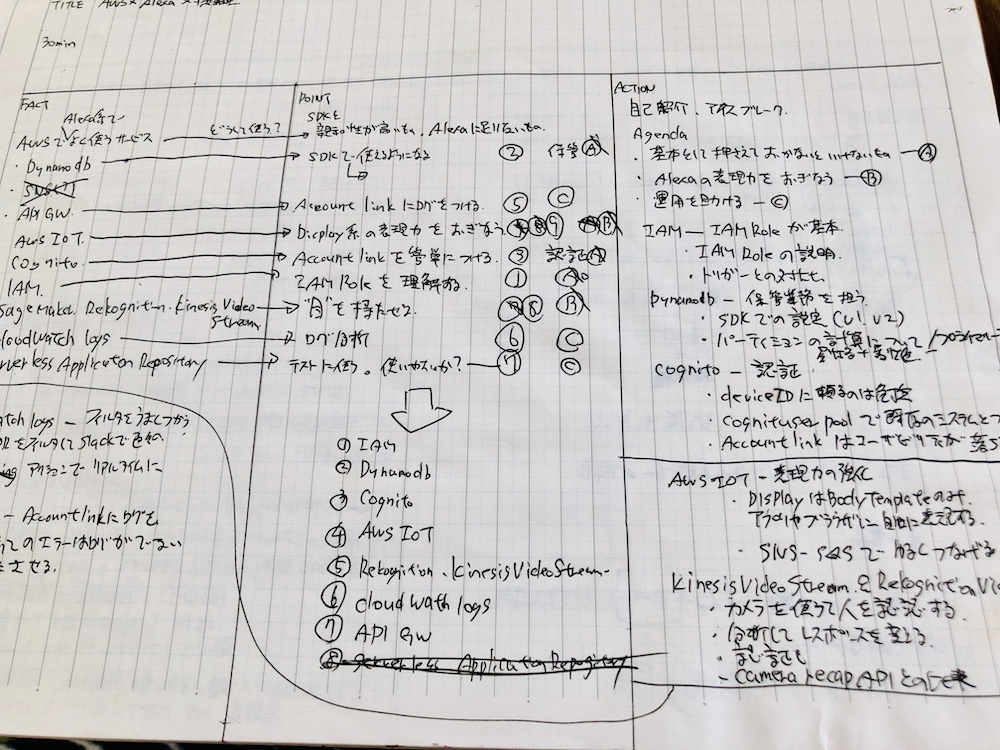 TITLE AWS × Alexa ×
30min
FACT
Alexa系で
AWSでよく使うサービス
どうして使う?
・Dynamodb
・API GW.
AWS IOT.
Cognito.
IAM.
SageMaker. Rekognition. Kinesis Video Stream.
Cloudwatch logs
Serverless Application Repository
POINT
SDKと
親和性が高いもの、Alexaに足りないもの.
SDKで使えるようになる ② 保管 Ⓐ
Account linkにログをつける. ⑤ Ⓒ
Display系の表現力をおぎなう ⑨ Ⓑ
Account linkを簡単につける. ③ 認証 Ⓐ
IAM Roleを理解する. ① Ⓐ
"目"を持たせる. ⑧ Ⓑ
ログ分析 ⑥ Ⓒ
テストに使う。使いやすいか? ⑦ Ⓒ
① IAM
② Dynamodb
③ Cognito
④ AWS IOT
⑤ Rekognition、Kinesis Video Stream
⑥ cloudwath logs
⑦ API GW
⑧ Serverless Application Repository
ACTION
自己紹介、アイスブレーク.
Agenda
・基本として押さえておかないといけないもの Ⓐ
・Alexaの表現力をおぎなう Ⓑ
・運用を助ける Ⓒ
IAM — IAM Roleが基本.
・IAM Roleの説明.
・トリガーとの対比.
Dynamodb — 保管業務を担う.
・SDKでの設定 (v1, v2)
・パーティションの計算について
Cognito — 認証
・deviceIDに頼るのは危険
・Cognito user poolで既存のシステムとつ
・Account linkはユーザビリティが落ち
AWS IOT — 表現力の強化
・DisplayはBody Templateのみ.
アプリやブラウザに自由に表現する.
・SNS-SQSでゆるくつなげる
Kinesis Video StreamとRekognition Vi
・カメラを使って人を認識する.
・分析してレスポンスを変える.
・Camera recap APIとの
watch logs — フィルタをうまくつかう
をフィルタしてSlackで
アクションでリアルタイムに
— Account linkにログを
ってのエラーはログがでない
させる.